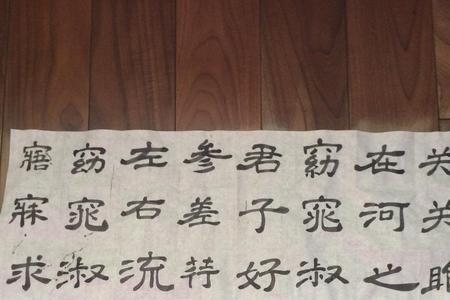 关关
在河之
窈窕淑
君子好
参差荇
左右流
窈窕淑
寤寐求